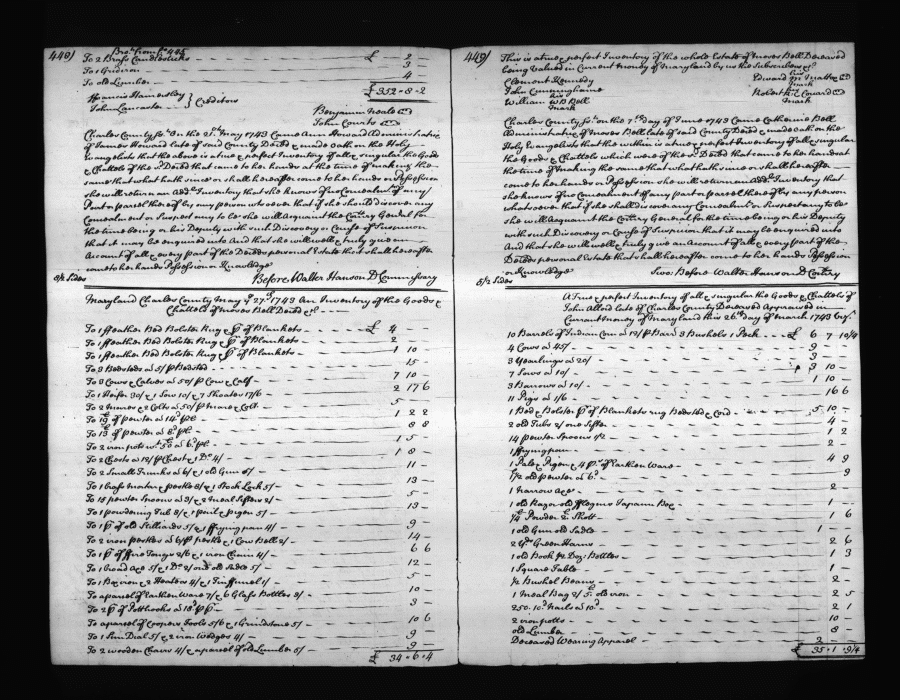 448)
Bro.t from fo 445
To 2 Brass Candlesticks £ 2 -
To 1 Gridiron 3
To old Lumber 4
£ 352 - 8 - 2
Francis Hamersley
John Lancaster } Creditors
Benjamin Neale
John Courts
Charles County Ss.t On the 21.st May 1743 Came Ann Howard Administratrix
of James Howard late of said County Deced & made Oath on the Holy
Evangelists that the above is a true & perfect Inventory of all & singular the Goods
& Chattels of the s.d Deced that came to her hands at the time of making the
same that what hath since or shall hereafter come to her hands or Possession
she will return an Add.l Inventory that she knows of no Concealm.t of any
Part or parcel thereof by any person whosoever that if she should discover any
Concealment or Suspect any to be she will Acquaint the Com.ry General for
the time being or his Deputy with such Discovery or Cause of Suspicion
that it may be enquired into And that she will well & truly give an
Account of all & every part of the Deceds personal Estate that shall hereafter
come to her hands Possession or Knowledge
Before Walter Hanson D Commissary
Sides
Maryland Charles County May y.e 27.th 1743 An Inventory of the Goods &
Chattels of Moses Bell Deced &c
To 1 ffeather Bed Bolster Rug & p.r of Blankets £ 4 -
To 1 ffeather Bed Bolster Rug & p.r of Blankets 2 -
To 1 ffeather Bed Bolster Rug & p.r of Blankets 1 10 -
To 3 Bedsteds a 5/ p Bedsted 15 -
To 3 Cows & Calves a 50/ p Cow & Calf 7 10 -
To 1 Heifer 30/ & 1 Sow 10/ & 7 Shoates 17/6 2 17 6
To 2 mares & 2 Colts a 50/ p mare & Colt 5 -
To 19 of pewter a 14.d p l 1 2 2
To 13 of pewter a 8.d p l 8 8
To 2 iron pots w.t 50 a 6.d p l 1 5 -
To 2 Chests a 12/ p Chest & 1 D.o 4/ 1 8 -
To 2 Small Trunks a 6/ & 1 old Gun 11 -
To 1 brass mortar & pestle 8/ & 1 Stock Lock 5/ 13 -
To 15 pewter Spoons a 3/ & 2 Meal Sifters 2/ 5 -
To 1 powdering Tub 8/ & 1 pail & pigen 5/ 13 -
To 1 p.r of old Stilliards 5/ & 1 ffrying pan 4/ 9 -
To 2 iron pestles a 6/ p pestle & 1 Cow Bell 2/ 14 -
To 1 p.r of fire Tongs 2/6 & 1 iron Chain 4/ 6 6
To 1 broad axe 5/ & 1 D.o 2/ and old Sadle 5/ 12 -
To 1 Box iron & 2 Heaters 4/ & 1 Tin ffunnel 1/ 5 -
To a parcel of earthen Ware 7/ & 6 Glass Bottles 3/ 10 -
To 2 p.r of Pothooks a 18.d p p.r 3 -
To a parcel of Coopers Tools 5/6 & 1 Grindstone 5/ 10 6
To 1 Sun Dial 5/ & 2 iron Wedges 4/ 9 -
To 2 wooden Chairs 4/ & a parcel of old Lumber 5/ 9 -
£ 34 - 6 - 4
449)
This is a true & perfect Inventory of the whole Estate of Moses Bell Deceased
being Valued in Current money of Maryland by us the Subscribers
Clement Kennedy
John Cunninghame
William W B Bell
his
mark
Edward M
his
mark
Robert R C Coward
mark
Charles County Ss.t on the 7.th Day of June 1743 Came Catherine Bell
Administratrix of Moses Bell late of said County Deced & made Oath on the
Holy Evangelists that the within is a true & perfect Inventory of all & singular
the Goods & Chattels which were of the s.d Deced that came to her hands at
the time of making the same that what hath since or shall hereafter
come to her hands or Possession she will return an Add.l Inventory that
she knows of no Concealment of any part or parcel thereof by any person
whatsoever that if she shall discover any Concealm.t or Suspect any to be
she will Acquaint the Com.ry General for the time being or his Deputy
with such Discovery or Cause of Suspicion that it may be enquired into
And that she will well & truly give an Account of all & every part of the
Deceds personal Estate that shall hereafter come to her hands Possession
or Knowledge
Before Walter Hanson D Com.ry
5/2 Sides
A True & perfect Inventory of all & singular the Goods & Chattels of
John Allord late of Charles County Deceased Appraised in
Currant money of Maryland this 26.th day of March 1743
10 Barrels of Indian Corn a 12/ p Barr 3 Bushels 1 Peck £ 6 7 10/4
4 Cows a 45/ 9 -
3 Yearlings a 20/ 3 -
7 Sows a 10/ 3 10 -
3 Barrows a 10/ 1 10 -
11 Pigs a 1/6 16 6
1 Bed & Bolster p.r of Blankets rug Bedsted & Cord 5 10 -
2 old Tubs 2/ one Sifter 4 -
14 pewter Spoons 1/2 1 2
1 ffrying pan 2 -
1 Pale & Pigen & 4 p.s of Earthen Ware 4 9
1/2 old pewter a 6.d 9
1 narrow axe 2 -
1 old Razor old fflegme Japann Box 1 -
1/4 Powder 2 Shott 1 6
1 old Gun old Sadle 1 - -
2 y.ds Green Harns 2 6
1 old Book 1/2 Doz: Bottles 1 3
1 Square Table 1 -
1/2 Bushel Beans 2 -
1 Meal Bag 2/ 5 old iron 2 5
250 . 10.d Nails a 10.d 2 1
2 iron potts 10 -
old Lumber 8 -
Deceased Wearing Apparel 2 -
£ 35 - 1 - 9/4